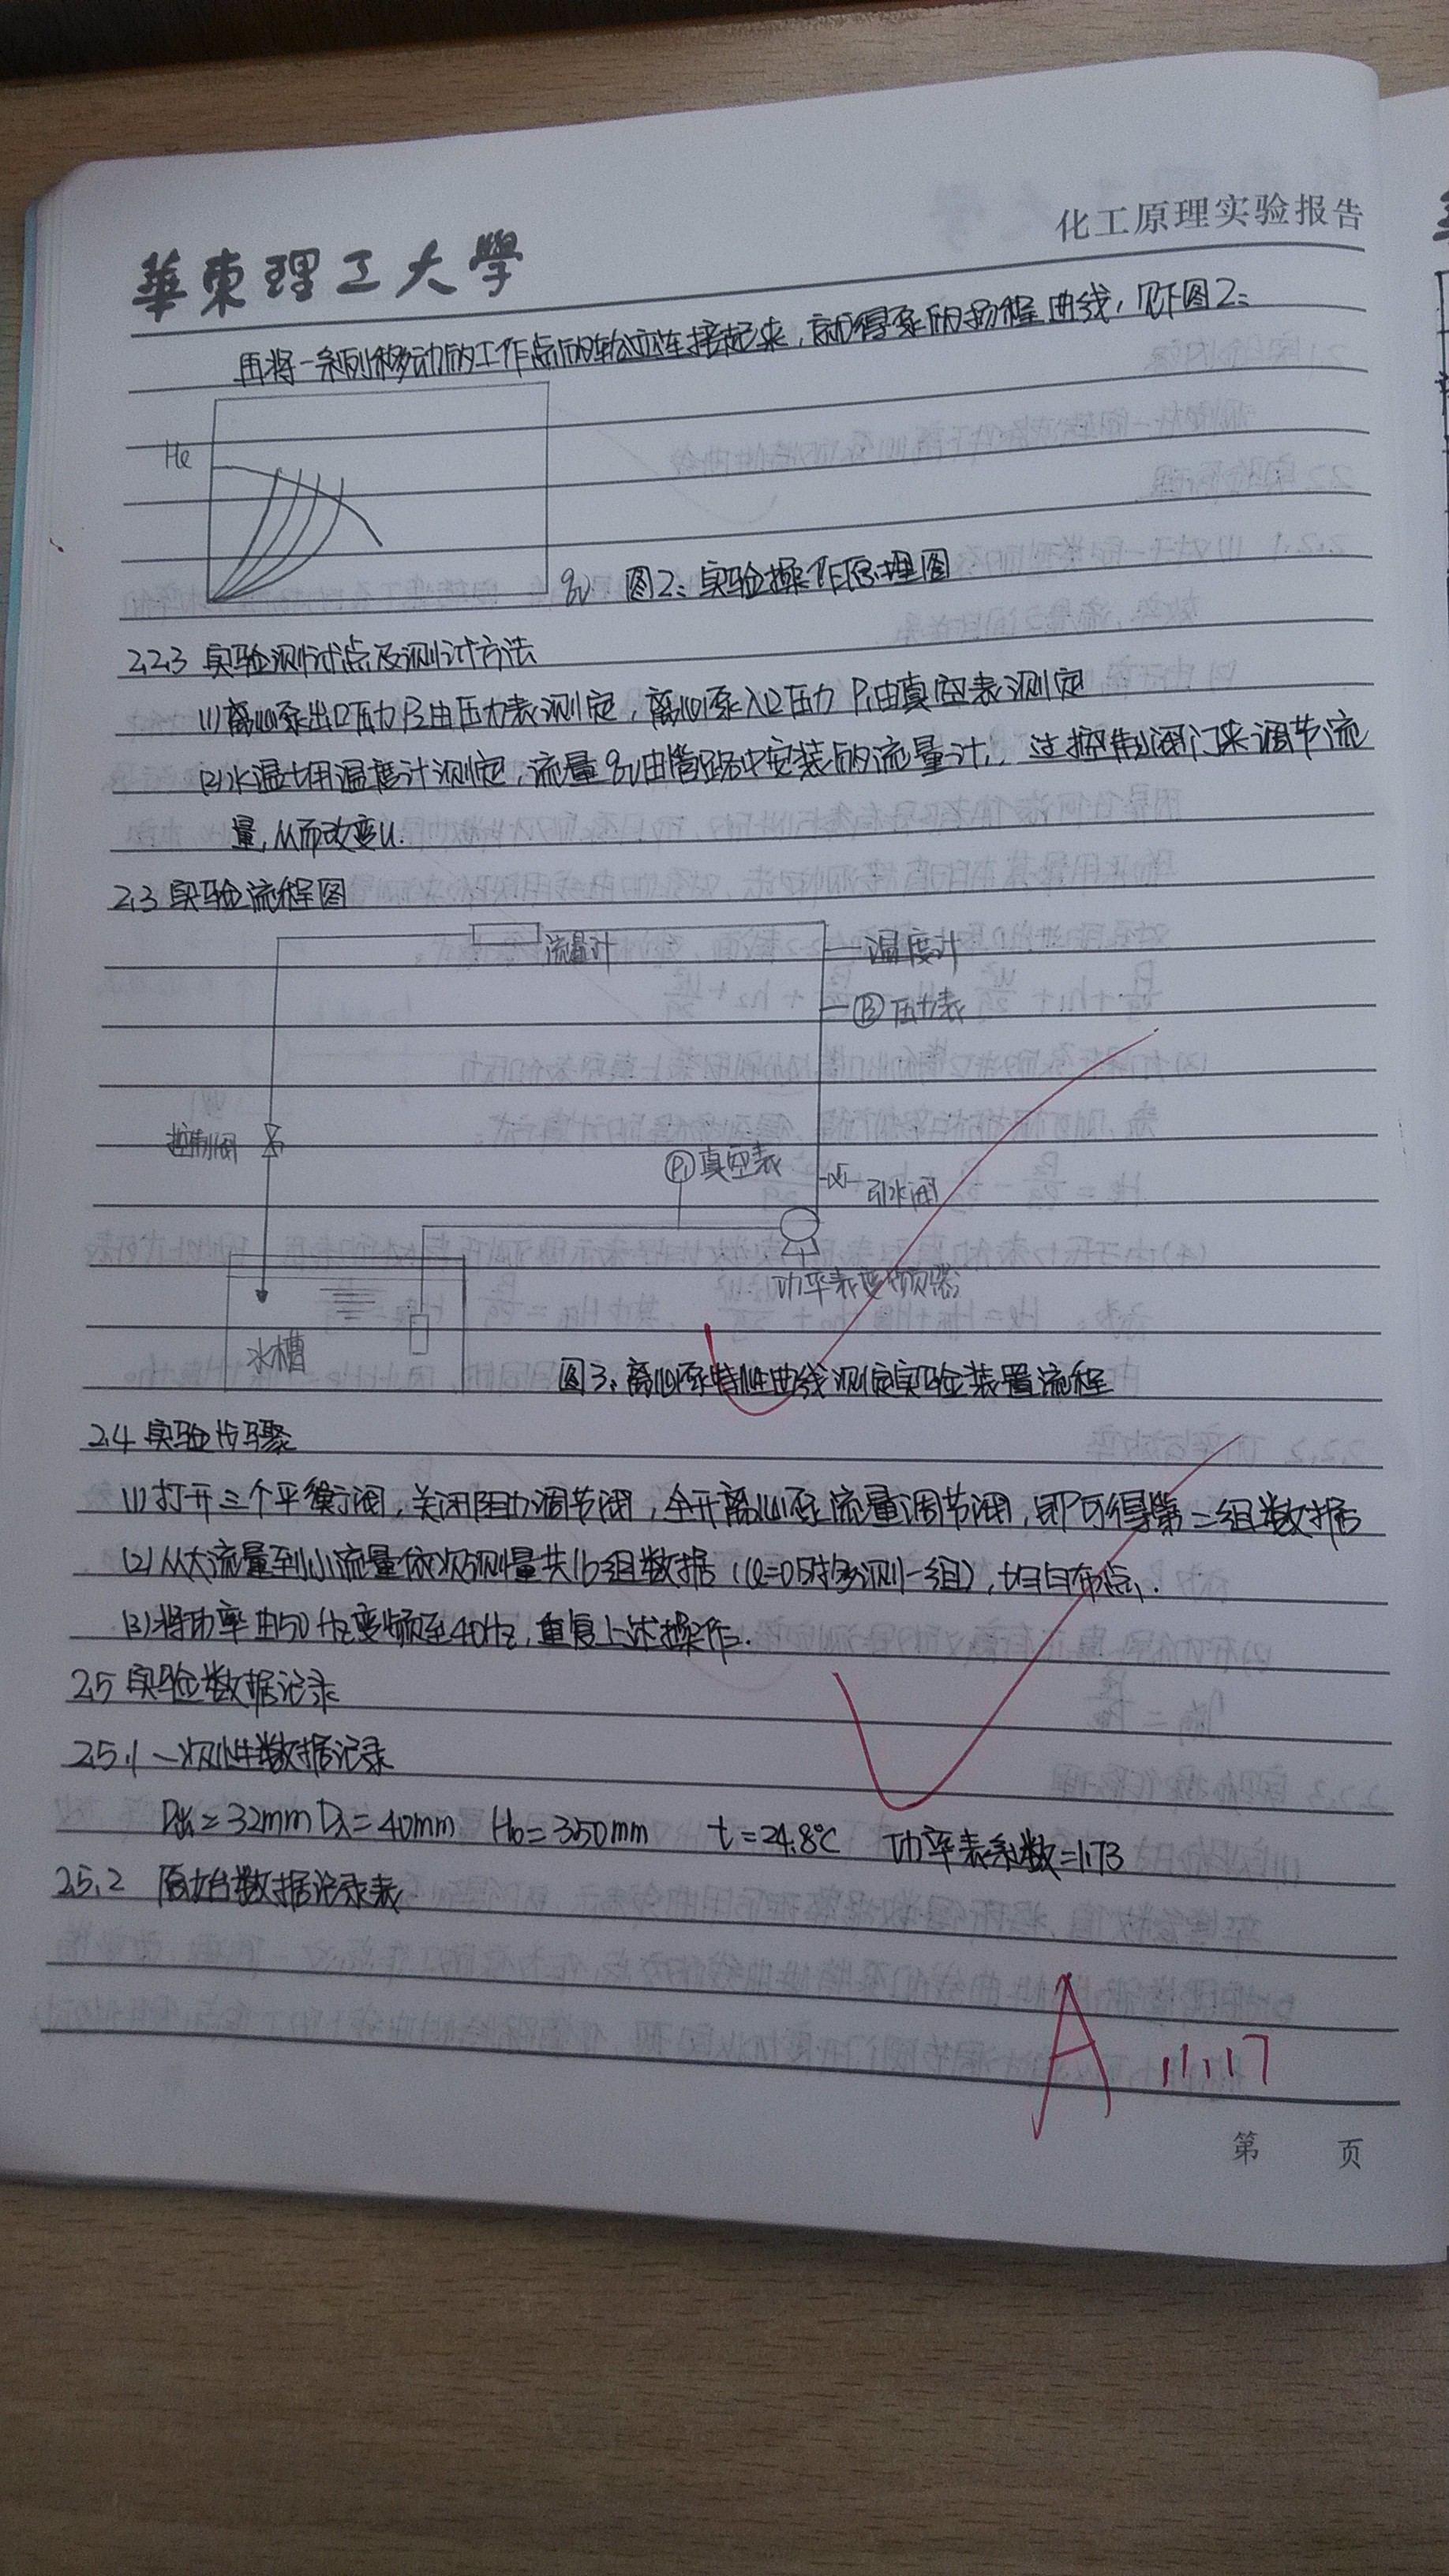 化工原理实验报告
華東理工大學
再将一系列移动的工作点的轨迹连接起来，就得泵的扬程曲线，见下图2：
He
qv 图2：实验操作原理图
2.2.3 实验测试点及测试方法
(1) 离心泵出口压力P2由压力表测定，离心泵入口压力P1由真空表测定
(2) 水温t用温度计测定，流量qv由管路中安装的流量计，过控制阀门来调节流
量，从而改变u.
2.3 实验流程图
流量计
温度计
P2 压力表
控制阀
P1 真空表
引水阀
功率表 变频器
水槽
图3：离心泵特性曲线测定实验装置流程
2.4 实验步骤
(1) 打开三个平衡阀，关闭阻力调节阀，全开离心泵流量调节阀，即可得第一组数据
(2) 从大流量到小流量依次测量共16组数据（Q=0时多测一组），均匀布点.
(3) 将功率由50Hz变频至40Hz，重复上述操作.
2.5 实验数据记录
2.5.1 一次性数据记录
=32mm D入=40mm H0=350mm t=24.8℃ 功率表系数=1.73
2.5.2 原始数据记录表
A 11.17
第 页